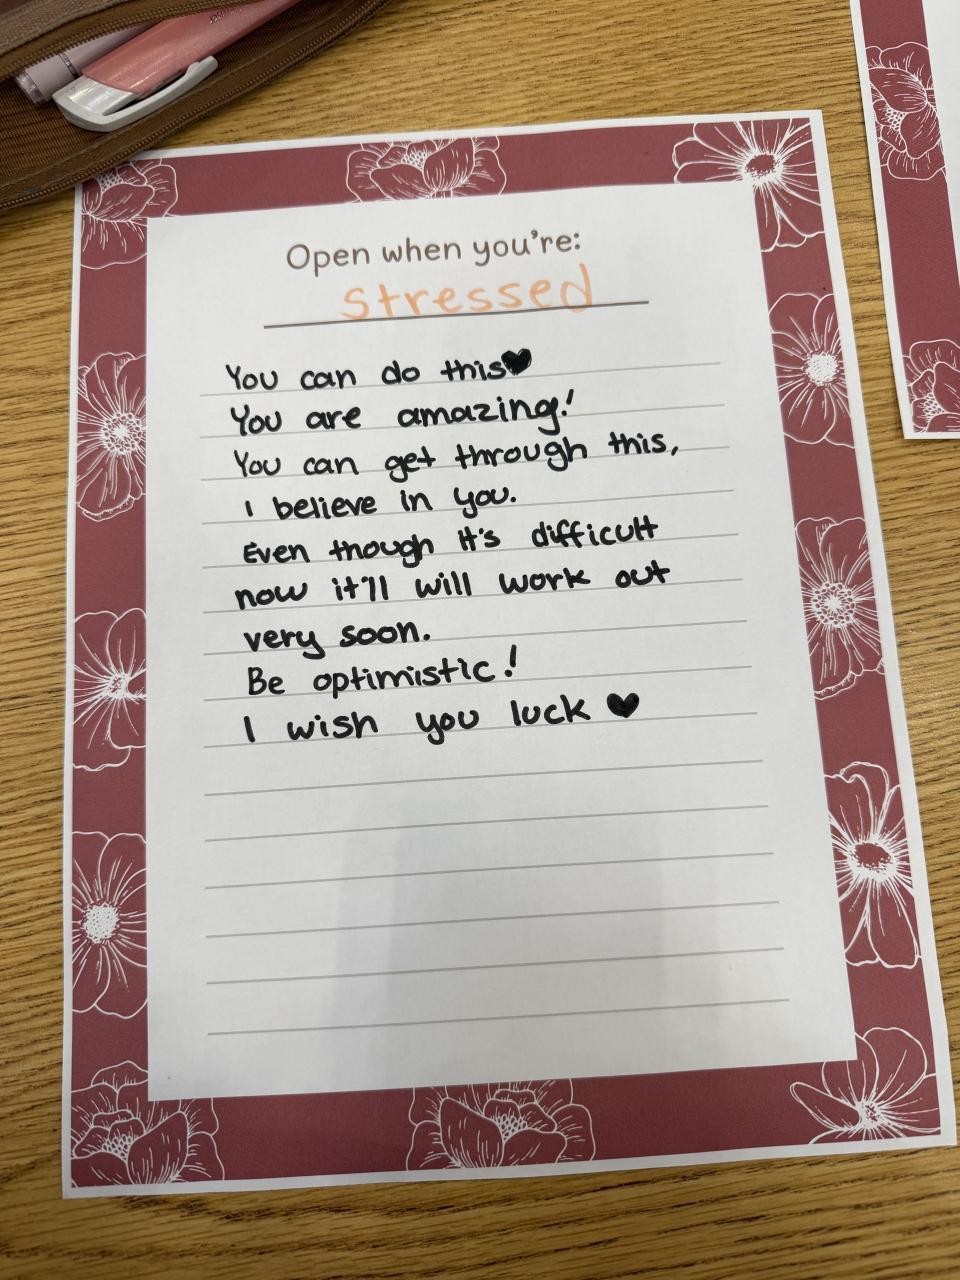 Open when you're:
stressed
You can do this♥
You are amazing!
You can get through this,
I believe in you.
Even though it's difficult
now it'll will work out
very soon.
Be optimistic!
I wish you luck ♥